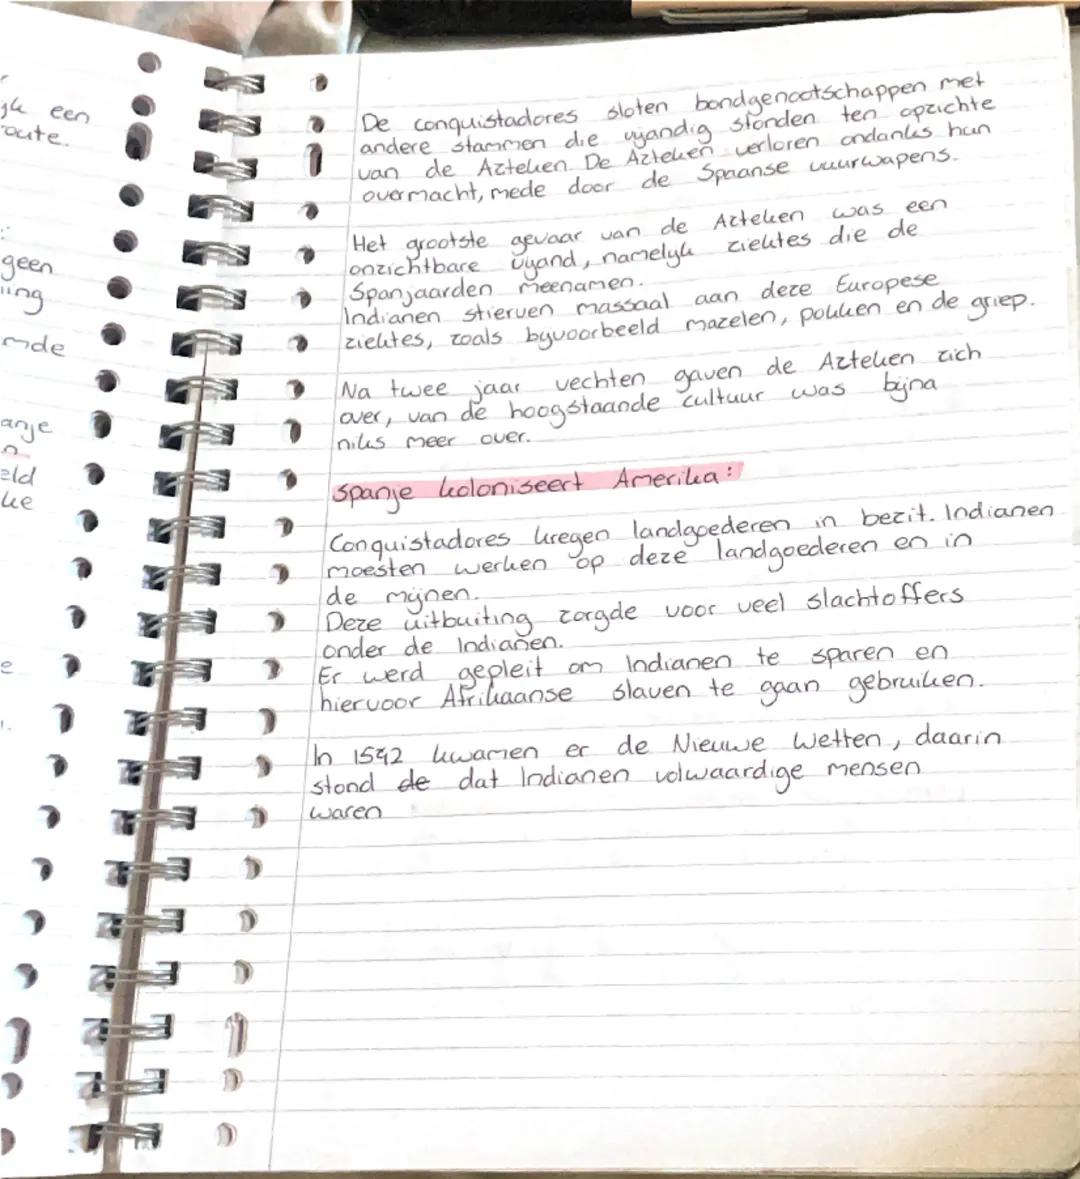 yk een
oute.
:
geen
ling
mde
anje
n
eld
ke
e
De conquistadores sloten bondgenootschappen met
andere stammen die vyandig stonden ten opzichte
van de Azteken. De Azteken verloren ondanks hun
overmacht, mede door de Spaanse vuurwapens.
Het grootste gevaar van de Azteken was een
onzichtbare vyand, namelyk ziektes die de
Spanjaarden meenamen.
Indianen stierven massaal aan deze Europese
ziektes, zoals byvoorbeeld mazelen, pokken en de griep.
Na twee jaar vechten gaven de Azteken zich
over, van de hoogstaande cultuur was bijna
niks meer over.
Spanje koloniseert Amerika:
Conquistadores kregen landgoederen in bezit. Indianen
moesten werken op deze landgoederen en in
de mijnen.
Deze uitbuiting zorgde voor veel slachtoffers
onder de Indianen.
Er werd gepleit om Indianen te sparen en
hiervoor Afrikaanse slaven te gaan gebruiken.
In 1542 kwamen er de Nieuwe Wetten, daarin
stond de dat Indianen volwaardige mensen
waren